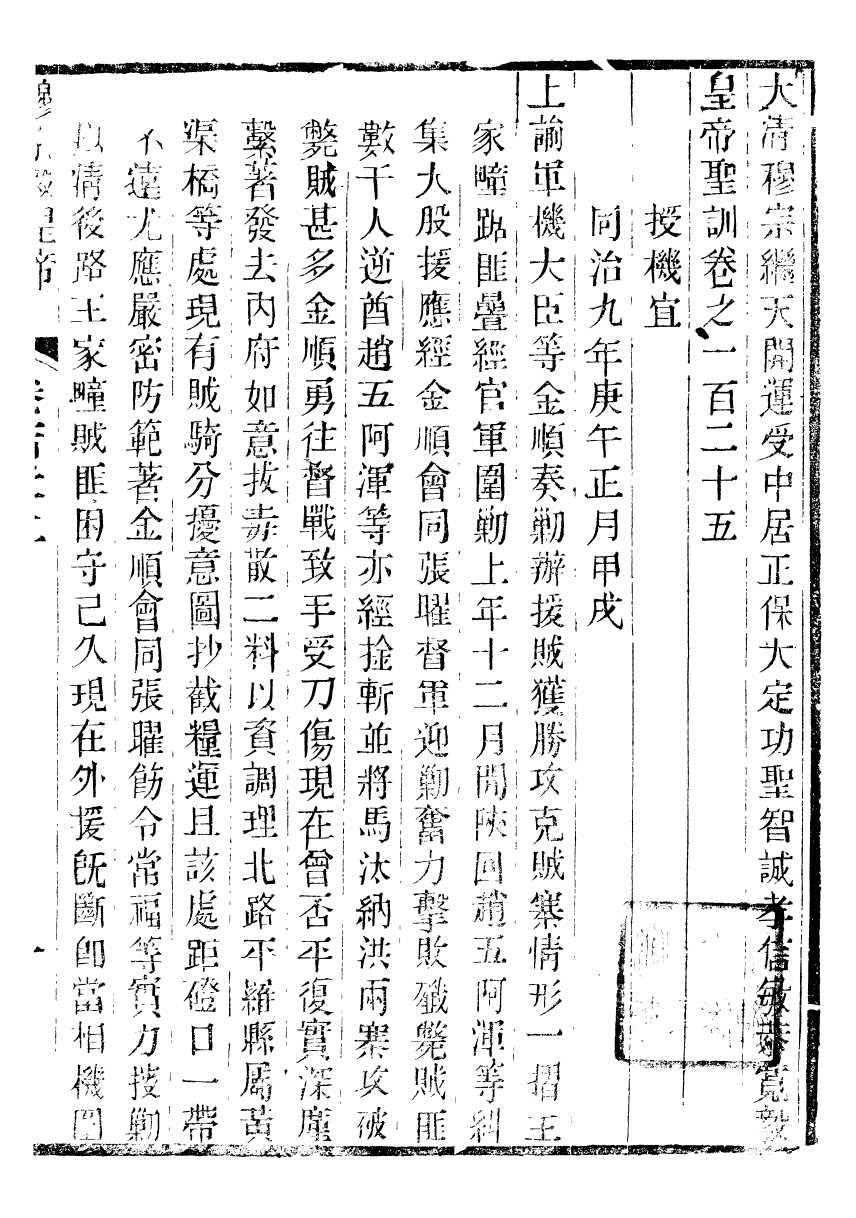 大清穆宗繼天開運受中居正保大定功聖智誠孝信敏恭寬毅
皇帝聖訓卷之一百二十五
授機宜
同治九年庚午正月甲戌
上諭軍機大臣等金順奏勦辦援賊獲勝攻克賊寨情形一摺王
家疃踞匪疊經官軍圍勦上年十二月間陝回趙五阿渾等糾
集大股援應經金順會同張曜督軍迎勦奮力擊敗殲斃賊匪
數千人逆酋趙五阿渾等亦經擒斬並將馬汰納洪兩寨攻破
斃賊甚多金順勇往督戰致手受刀傷現在曾否平復實深廑
繫著發去內府如意拔毒散二料以資調理北路平羅縣屬黃
渠橋等處現有賊騎分擾意圖抄截糧運且該處距磴口一帶
不遠尤應嚴密防範著金順會同張曜飭令常福等實力技勦
以清後路王家疃賊匪困守已久現在外援既斷卽當相機圖
毅皇帝
一